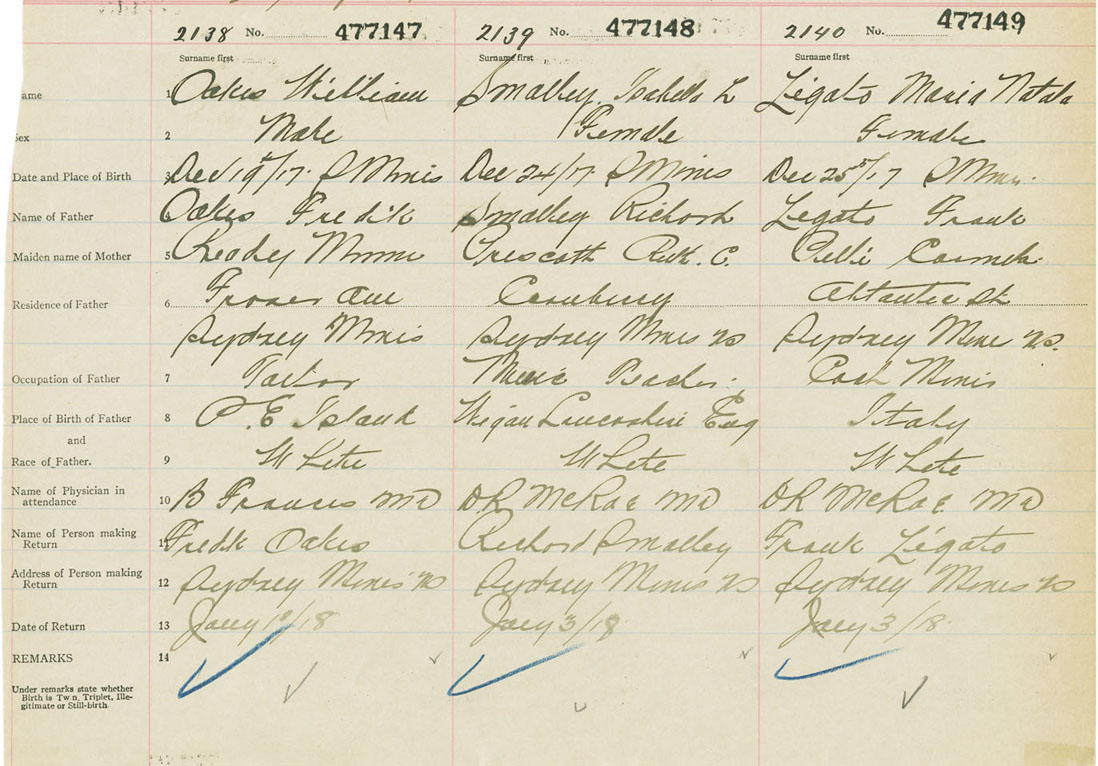 2138 No. 477147 2139 No. 477148 2140 No. 477149
Surname first Surname first Surname first
ame 1 Oakes William Smalley, Isabella L Legato Maria Natala
Sex 2 Male Female Female
Date and Place of Birth 3 Dec 19/17. S Mines Dec 24/17. S Mines Dec 25/17 S Mines
Name of Father Oakes Fredk Smalley Richard Legato Frank
Maiden name of Mother 5 Minnie Prescott Ruth. C.
Residence of Father 6 Fraser Ave Cranberry Atlantic St
Sydney Mines Sydney Mines NS Sydney Mine NS.
Occupation of Father 7 Tailor Music Teacher. Coal Mines
Place of Birth of Father 8 P. E Island Wigan Lancashire Eng Italy
and
Race of Father. 9 White White White
Name of Physician in
attendance 10 B Francis MD DR McRae MD DR McRae MD
Name of Person making
Return 11 Fredk Oakes Richard Smalley Frank Legato
Address of Person making
Return 12 Sydney Mines NS Sydney Mines NS Sydney Mines NS
Date of Return 13 Jany /18 Jany 3/18 Jany 3/18
REMARKS 14
Under remarks state whether
Birth is Tw n, Triplet, Ille-
gitimate or Still-birth.